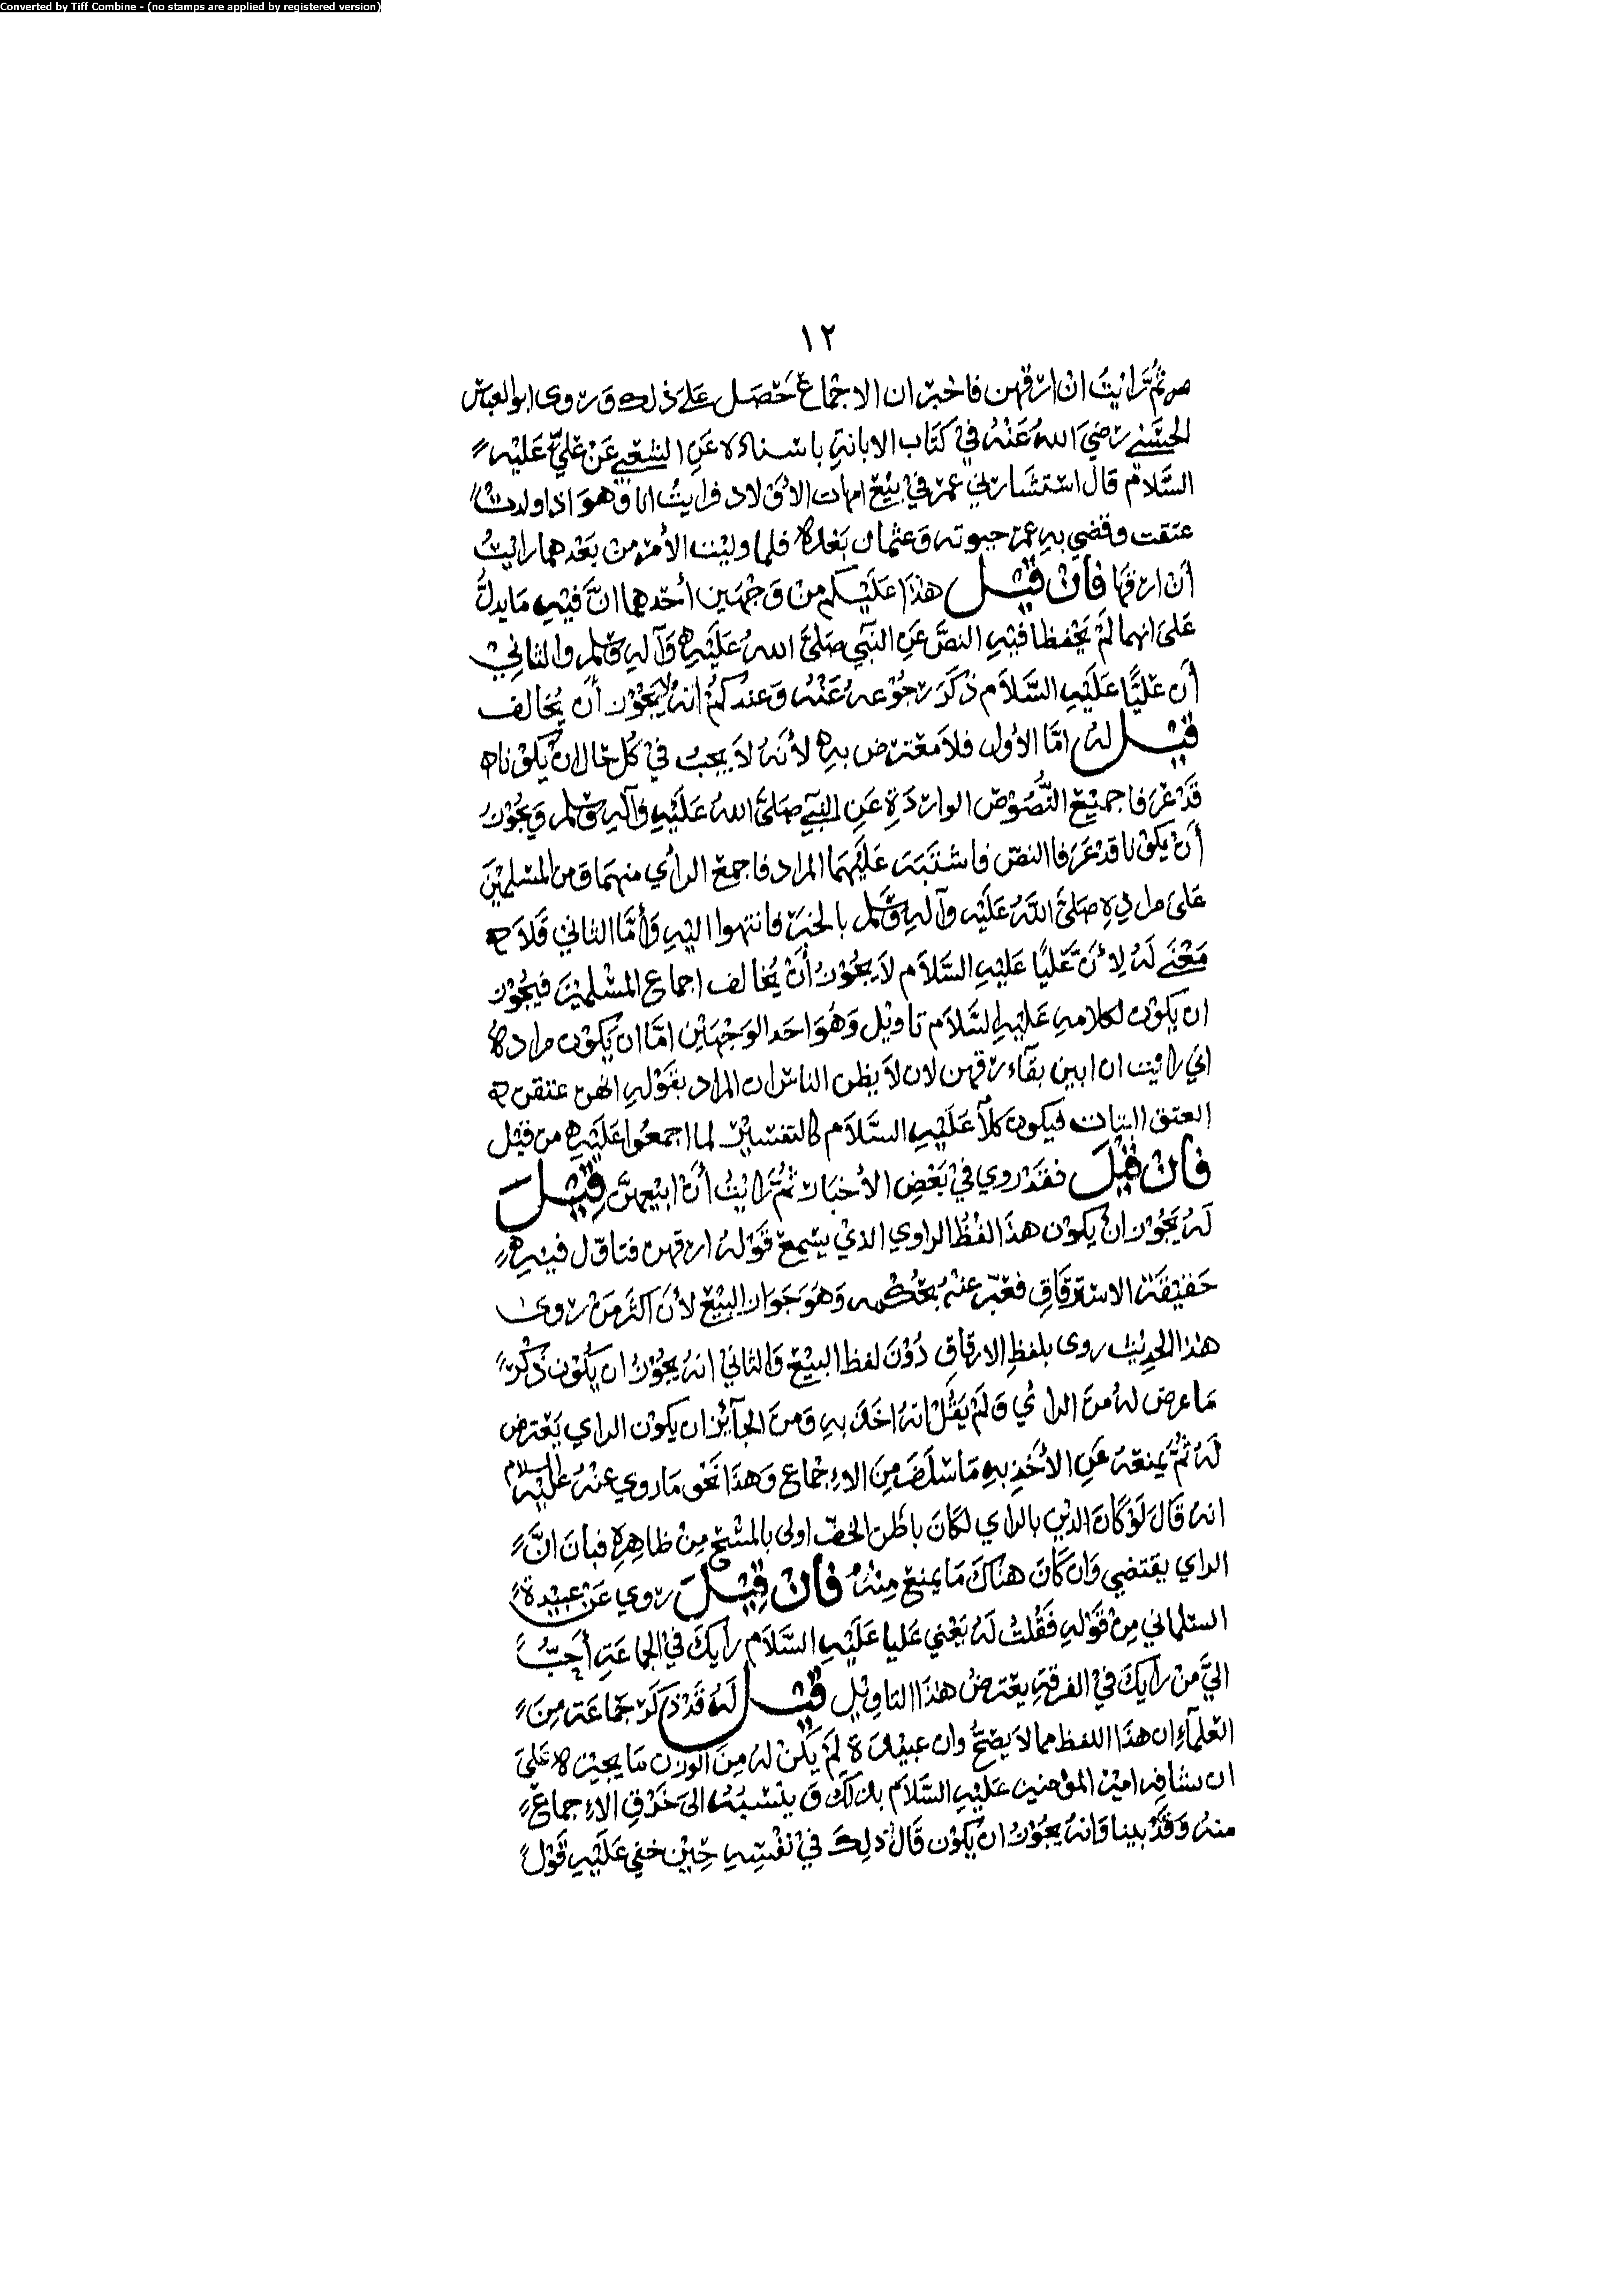 Converted by Tiff Combine - (no stamps are applied by registered version)
١٢
ثُمَّ رَايتُ ان ارقهن فاخبر ان الاجْمَاعَ حَصَل عَلى ذلك وَروى ابو العباس
الحسَني رَضيَ اللهُ عَنْهُ فيْ كتَاب الابانةِ باسناده عَنِ الشعْبي عَنْ عَليٍّ عَليْه
السَّلام قال استَشَارني عمرُ فيْ بيْع امهات الاوْلاد فرايتُ انا وَهوَ اذا ولدت
عتقت وقضى بهِ عمرُ حيوته وَعثمان بَعْدهُ فلما وليْت الأمْرَ منْ بعَدهما رايْتُ
أن ارقها فانْ قيْل هٰذا عَليْكم منْ وَجْهَين أحَدهما انَّ فيْهِ مَا يدلُّ
عَلى انهما لَمْ يَحْفظا فيْهِ النصَّ عَنِ النَّبي صَلىَّ اللهُ عَلَيْهِ وَآلهِ وَسَلم والثانيْ
أن عَليًّا عَلَيْهِ السَّلاَم ذكَرَ رجُوْعه عَنْهُ وَعندكمْ انهُ لا يَجُوْز أن يُخالف
قيْل لهُ امَّا الأول فلا معْترض بهِ لأنهُ لاَ يجبُ فيْ كُل حَال ان يكوْنا
قَدْ عَرَفا جميْع النُّصُوْص الوارِدَةِ عَنِ النبَّي صَلىَّ اللهُ عَلَيْهِ وَآلهِ وَسَلم وَيَجُوْزُ
أنْ يكوْنا قدْ عَرَفا النصّ فاشتَبَهَ عَلَيْهمَا المراد فاجمع الرأي منهمَا وَمن المسْلميْنَ
عَلىَ مرادِهِ صَلىَّ اللهُ عَلَيْهِ وَآلهِ وَسَلم بالخبَر فانتهوا اليْهِ وَأمَّا الثاني فَلاَ
مَعْنَى لَهُ لِأنَّ عَليًّا عَليْهِ السَّلاَم لاَ يجُوْزُ أنْ يُخالف اجماع المسْلميْنَ فيَجُوْز
ان يكوْن لكلامهِ عَليْهِ السَّلاَم تاويْل وَهُوَ احَد الوَجْهَيْنِ امَّا ان يَكوْن مراده
اني رايْت ان ابين بقآء رقهن لان لاَ يظن الناسُ ان المراد بقَوْلهِ انهن عتقن
العتق البتات فيكون كلآ عَلَيْهِ السَّلاَم كالتفسيْر لما اجمعُوا عَلَيْهِ من قبْل
فانْ قيْلَ فقَدْ روي فيْ بَعْضِ الأخبَار ثمَّ رَايْتُ أنْ ابيْعهنَّ قِيْلَ
لَهُ يَجُوْز انْ يكوْن هذا لفْظُ الراوي الذيْ يسْمعُ قَوْلهُ ارقهن فتاوَّل فيْهِ
حَقيْقَة الاسترقَاقِ فعَبّر عنْهُ بحُكْمه وَهَوَ جَوَاز البَيْع لأنَ اكثر مَنْ روى
هذا الحديْث روى بلفظِ الارقاقِ دُوْنَ لفظ البيْع وَالثانيْ انهُ يجُوْزُ ان يكُوْن ذكَرَ
مَا عرض لهُ منَ الرائ وَلَمْ يَقُلْ انهُ اخذ بهِ وَمنَ الجآئز ان يكوْن الراي يَعْترض
لَهُ ثُمَّ يمنعهُ عَنِ الأخْذِ بهِ مَا سَلَفَ مِنَ الإجْمَاع وَهذَا نَحْو مَا روي عنْهُ عَليْهِ السلام
انهُ قَال لَوْ كَانَ الديْن بالراي لكَانَ باطن الخفّ اولى بالمسْح مِنْ ظاهِرِهِ فبَانَ انَّ
الراي يقتضي وَان كَانَ هنَاكَ مَا يمنع مِنْهُ فانْ قِيْلَ روي عَنْ عَبيْدة
السَّلماني مِنْ قَوْلهِ فقُلْتُ لَهُ يَعْني عَليا عَلَيْهِ السَّلاَم رايكَ فيْ الجماعَةِ أحَبُّ
اليَّ منْ رَايكَ فيْ الفرقةِ يعْترضُ هٰذا التاوِيْل قيْل لَهُ قَدْ ذكَرَ جَمَاعَة مِنَ
العُلمآءِ ان هذا اللفظ مما لاَ يصَحُّ وان عبيْدَة لَمْ يَكُنْ لهُ مِنَ الوزن مَا يجيْزهُ عَلى
ان يشافه اميْر المؤمنين عَليْهِ السَّلاَم بذلكَ وَينسُبَهُ الى خَرْقِ الإجماع
منهُ وَقَدْ بينا وَانهُ يجُوْزُ ان يكُوْن قَال ذلِكَ فيْ نفْسِهِ حِيْن خفي عَلَيْهِ قَوْل